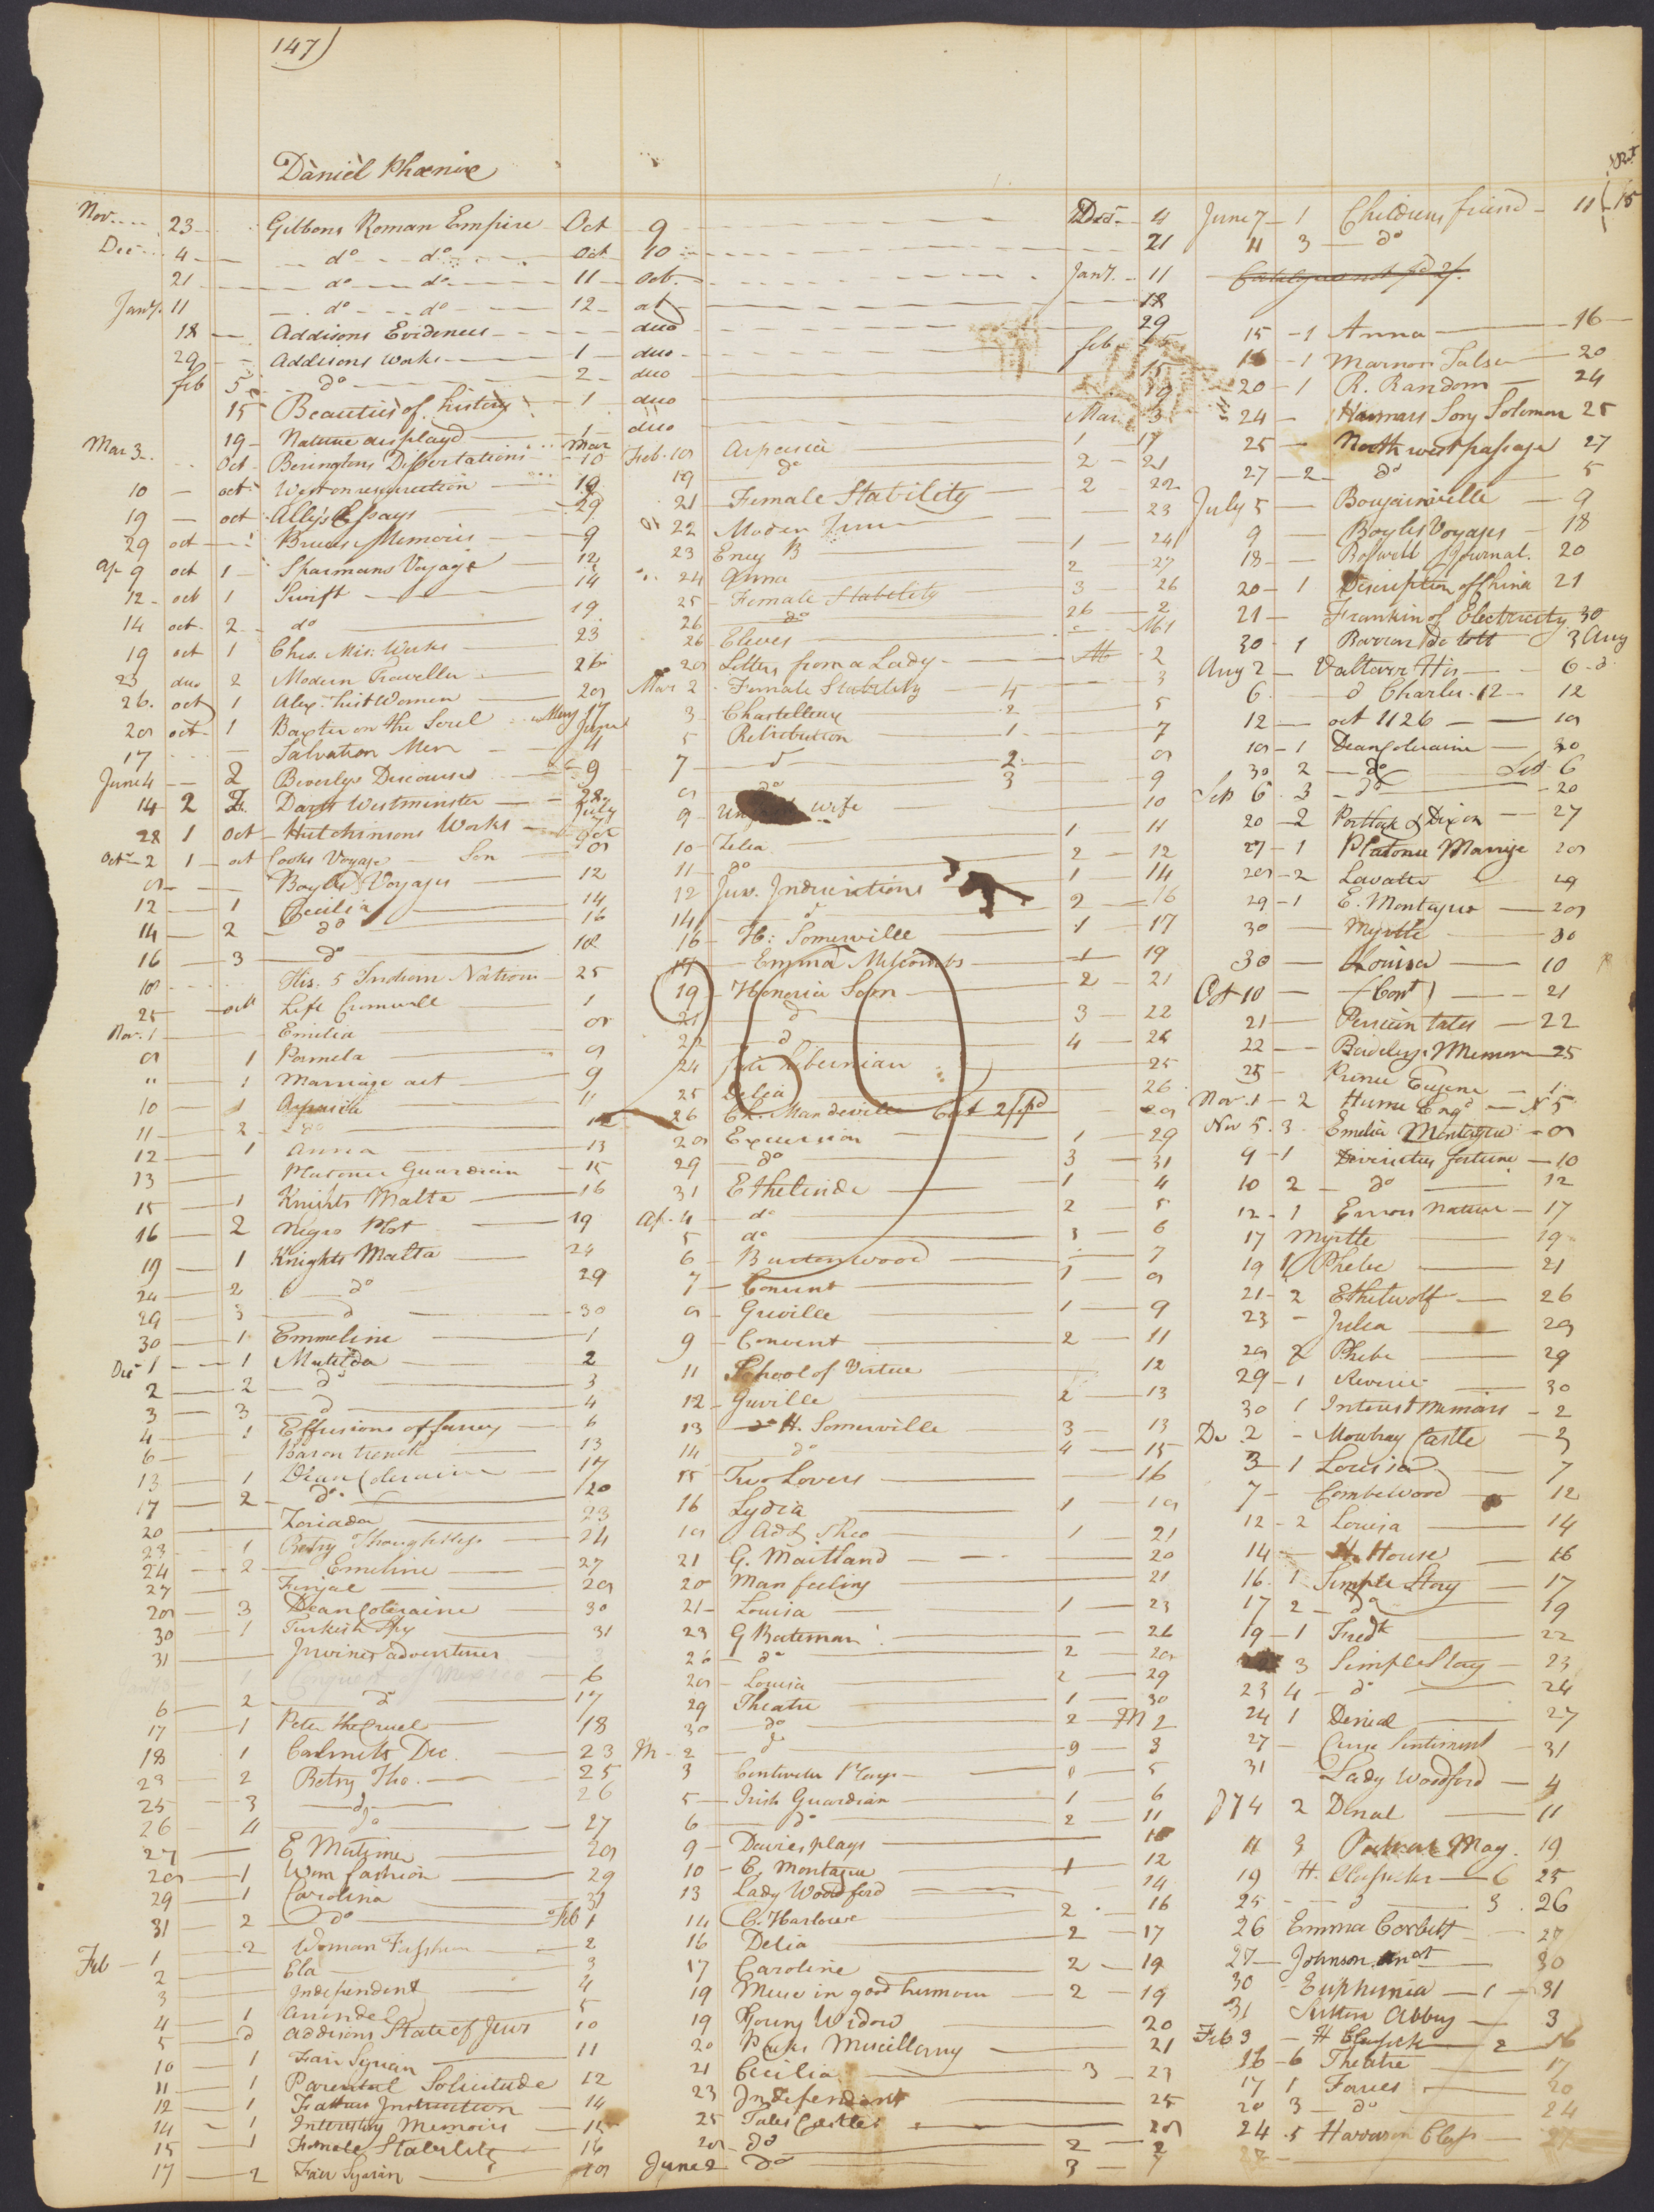 147)
Daniel Phœnix
Nov. 23 Gibbons Roman Empire Oct 9
Dec 4 do do Oct 10
21 do do 11 Oct.
Jany. 11 do do 12
18 Addisons Evidences duo
29 Addisons Works 1 duo
feb 5 do 2 duo
15 Beauties of history 1 duo
19 Nature displayd 1 duo
Mar 3 Oct Beringtons Dissertations Mar 10
10 oct West on resurrection 19
19 oct Ally's Essays 29
29 oct Bruces Memoirs 9
ap 9 oct 1 Sparmans Voyage 12
12 oct 1 Swift 14
14 oct 2 do 19
19 oct 1 Chs. Mis. Works 23
23 duo 2 Modern Traveller 26
26 oct 1 Alex. hist Women 28
28 oct 1 Baxter on the Soul May 17
17 Salvation Men June 4
June 4 2 Beverlys Discourses 9
14 2 Z. Days Westminster 28
28 1 Oct Hutchinsons Works
Octr 2 1 oct Cooks Voyage 8
8 Boyles Voyages 12
12 1 Cecilia 14
14 2 do 16
16 3 do 18
18 His. 5 Indian Nations 25
25 oct Life Cromwell 1
Nov. 1 Emilia 8
8 1 Pamela 9
" 1 Marriage act 9
10 1 Aspasia 11
11 2 do 12
12 1 Anna 13
13 Platonic Guardian 15
15 1 Knights Malta 16
16 2 Negro Plot 19
19 1 Knights Malta 24
24 2 do 29
29 3 d 30
30 1 Emmeline 1
Dec 1 1 Matilda 2
2 2 do 3
3 3 d 4
4 1 Effusions of fancy 6
6 Baron trenck 13
13 1 Dean Coleraine 17
17 2 do 20
20 Zoriada 23
23 1 Betsy Thoughtless 24
24 2 Emeline 27
27 Fingal 28
28 3 Dean Coleraine 30
30 1 Turkish Spy 31
31 Irvines adventures
1 Conquest of Mexico 6
6 2 d 17
17 1 Peter the Cruel 18
18 1 Dec. 23
23 2 Betsy Tho. 25
25 3 do 26
26 4 do 27
27 E Mortimer 28
28 1 Wom fashion 29
29 1 Carolina 31
31 2 do Feb 1
Feb 1 2 Woman Fashion 2
2 Ela 3
3 Independent 4
4 1 5
5 d Addisons State of Jews 10
10 1 Fair Syrian 11
11 1 Parental Solicitude 12
12 1 Fathers Instruction 14
14 1 Interesting Memoirs 15
15 1 Female Stability 16
17 2 Fair Syrian 18
Decr 4
21
Jany. 11
18
29
feb
15
19
Mar 3
Feb. 18 Aspasia 1 19
19 do 2 21
21 Female Stability 2 22
22 Modern 23
23 Ency B 1 24
24 Anna 2 27
25 Female Stability 3 26
26 do 26 2
26 Eleves M 1
28 Letters from a Lady 2
Mar 2 Female Stability 4 3
3 Chastelleux 2 5
5 Retribution 1 7
7 d 2 8
8 do 3 9
9 wife 10
10 Zelia 1 11
11 do 2 12
12 Juv. Indiscretions 1 14
14 d 2 16
16 H: Somerville 1 17
17 Emma Melcombs 1 19
19 Honoria Som 2 21
21 d 3 22
22 d 4 24
24 fair hibernian 25
25 Delia 26
26 Ch. Mandeville 28
28 Excursion 1 29
29 do 3 31
31 Ethelinde 1 4
Ap. 4 do 2 5
5 do 3 6
6 Burtonwood 7
7 Convent 1 8
8 Greville 1 9
9 Convent 2 11
11 School of Virtue 12
12 Greville 2 13
13 H. Somerville 3 13
14 do 4 15
15 Two Lovers 16
16 Lydia 1 18
18 Ad & Theo 1 21
21 G. Maitland 20
20 Man feeling 21
21 Louisa 1 23
23 G Bateman 26
26 do 2 28
28 Louisa 2 29
29 Theatre 1 30
30 do 2 M 2
M 2 d 9 3
3 5
5 Irish Guardian 1 6
6 do 2 11
9 Davies plays 10
10 C. Montague 1 12
13 Lady Woodford 14
14 C. Harlowe 2 16
16 Delia 2 17
17 Caroline 2 19
19 Muse in good humour 2 19
19 Young Widow 20
20 Miscellany 21
21 Cecilia 3 23
23 Independant 25
25 Tales Castles 28
28 do 2 2
June 2 do 3 7
June 7 1 Childrens friend 11
11 3 do
15 1 Anna 16
16 1 Marmon Tales 20
20 1 R. Random 24
24 Hannars Song Solomon 25
25 North west passage 27
27 2 do 5
July 5 Bougainville 9
9 Boyles Voyages 18
18 Boswell Journal. 20
20 1 Discription of China 21
21 Frankin of Electricity 30
30 1 Barron De tott 3 Aug
Aug 2 Valtairr His 6
6 d Charles 12 12
12 oct 1126 18
18 1 Dean Coleraine 30
30 2 do Sep 6
Sep 6 3 do 20
20 2 Portlock & Dixon 27
27 1 Platonic Marrige 28
28 2 Lavater 29
29 1 E. Montague 28
30 Myrtle 30
30 Louisa 10
Oct 10 (Cont) 21
21 Persian tales 22
22 Beverlys Memoir 25
25 Prince Eugene 1
Nov. 1 2 Hume Engd N 5
Nov 5 3 Emelia Montague 8
9 1 fortune 10
10 2 do 12
12 1 Errors nature 17
17 Myrtle 19
19 1 Phebe 21
21 2 Ethelwolf 26
23 Julia 28
28 2 Phebe 29
29 1 Reverie 30
30 1 Interest memoirs 2
De 2 Mowbray Castle 3
3 1 Louisa 7
7 Combewood 12
12 2 Louisa 14
14 H. House 16
16 1 Simple Story 17
17 2 do 19
19 1 Fredk 22
3 Simple Story 23
23 4 do 24
24 1 Denial 27
27 Sentiment 31
31 Lady Woodford 4
J7 4 2 Denal 11
11 3 Mag. 19
19 H. Classicks 6 25
25 d 3 26
26 Emma Corbett 27
27 Johnson 30
30 Euphemia 1 31
31 Sutton Abbey 3
Feb 3 H Classick 2 16
16 6 Theatre 17
17 1 Farces 20
20 3 do 24
24 5 Harrison Class 27